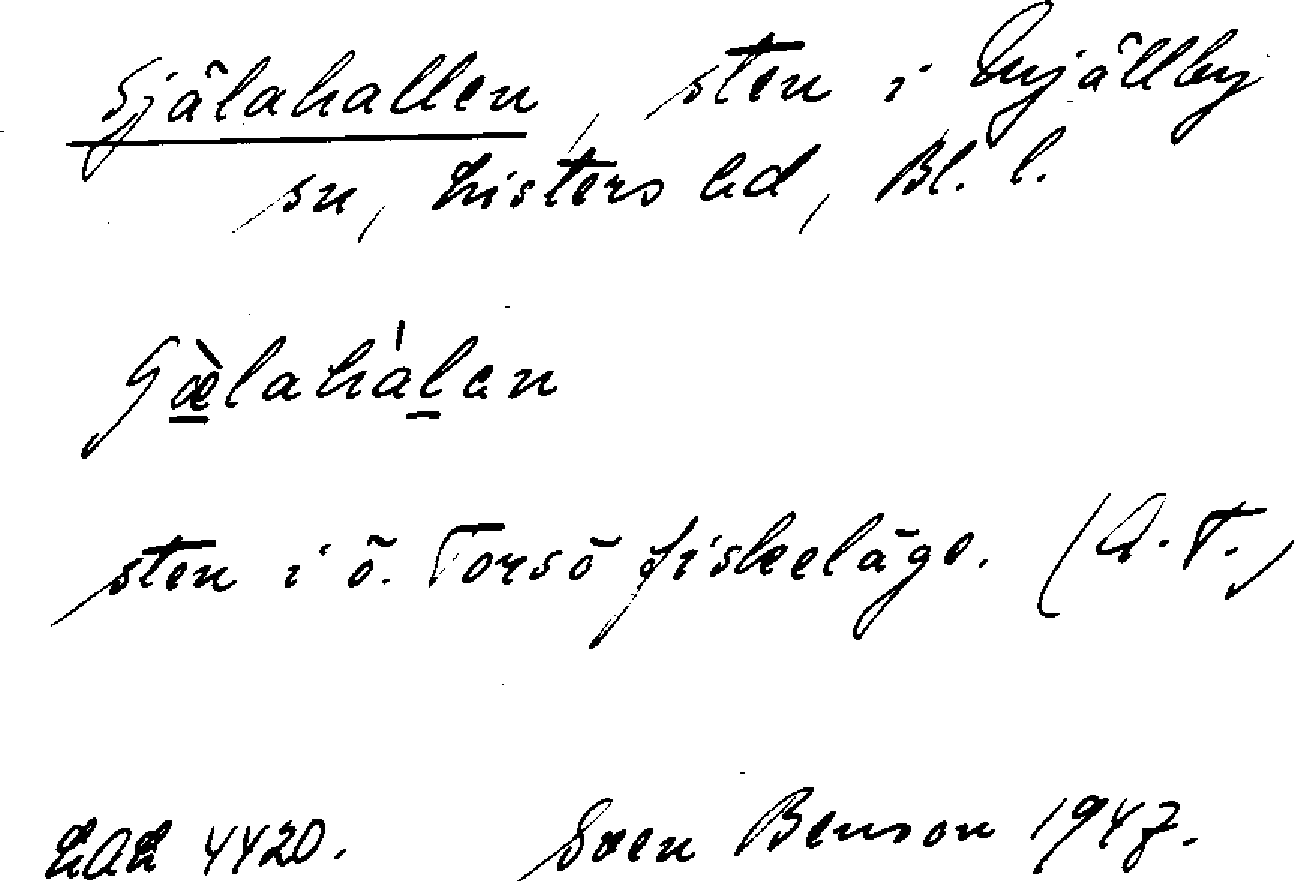 Själahallen, sten i Mjällby
sn, Listers hd, Bl. l.
ʃæ̀lahàlan
sten i ö. Torsö fiskeläge. (A.T.)
LAL 4420. Sven Benson 1947.